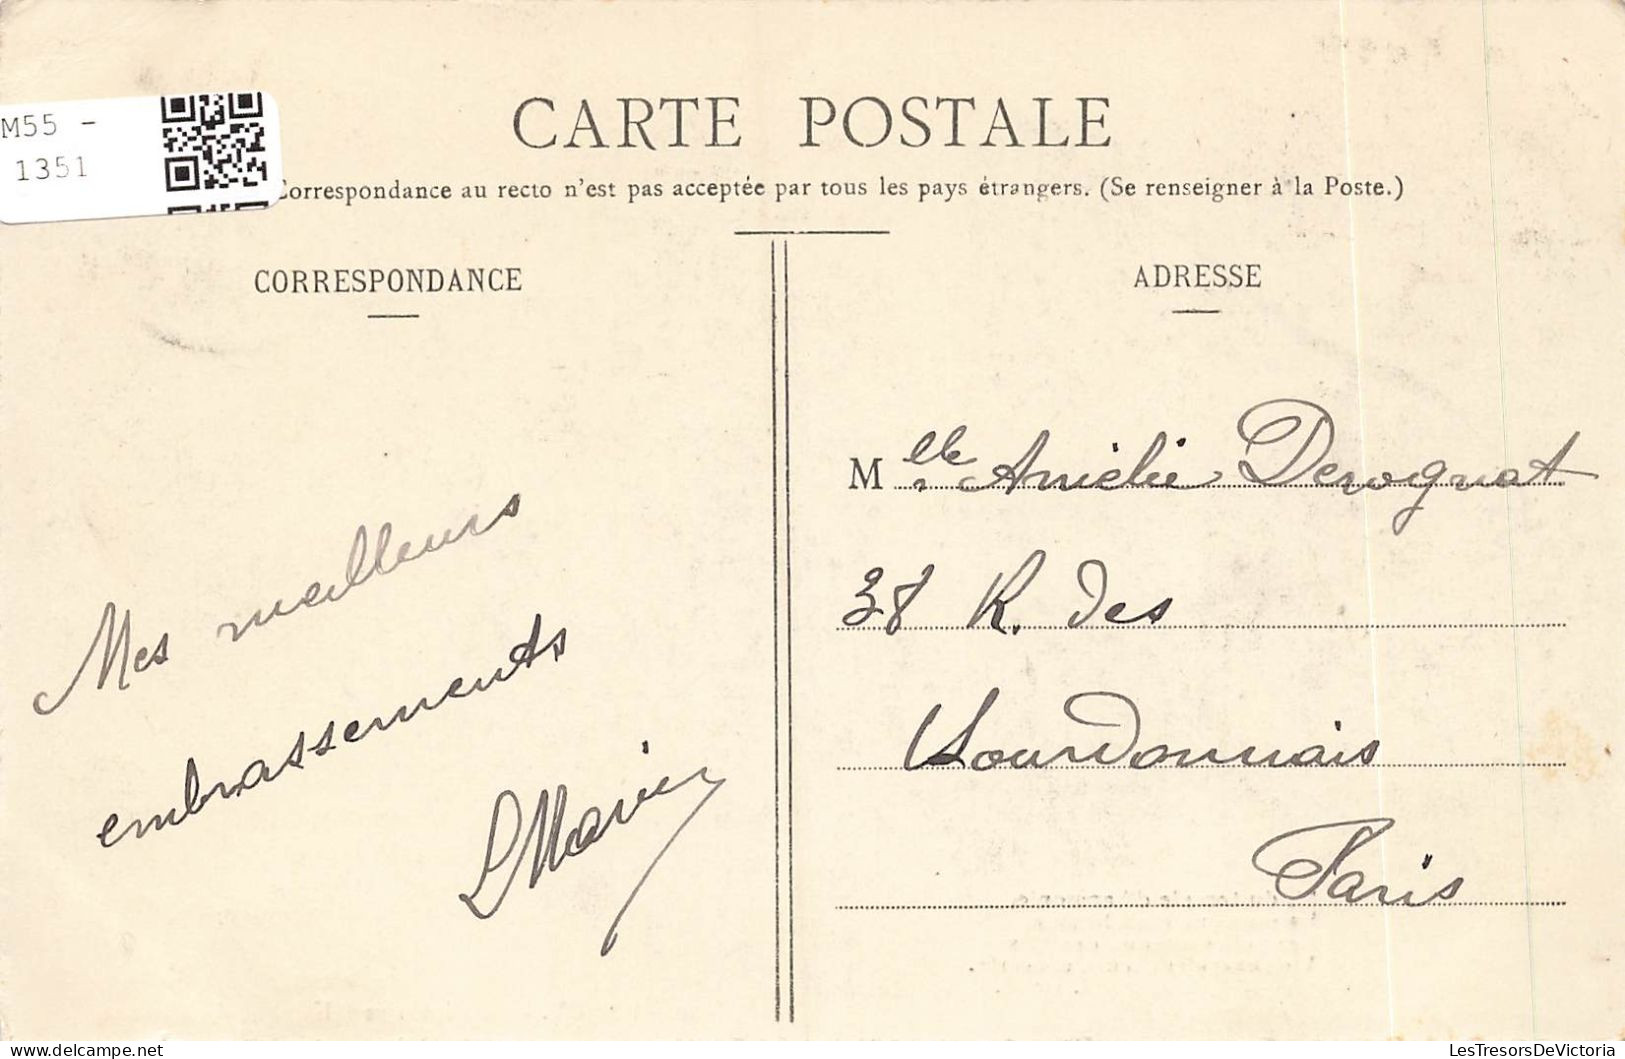 M55 -
1351
CARTE POSTALE
Correspondance au recto n'est pas acceptée par tous les pays étrangers. (Se renseigner à la Poste.)
CORRESPONDANCE
Mes meilleurs
embrassements
ADRESSE
Mlle Amélie Derognat
38 R. des
Paris
LesTresorsDeVictoria